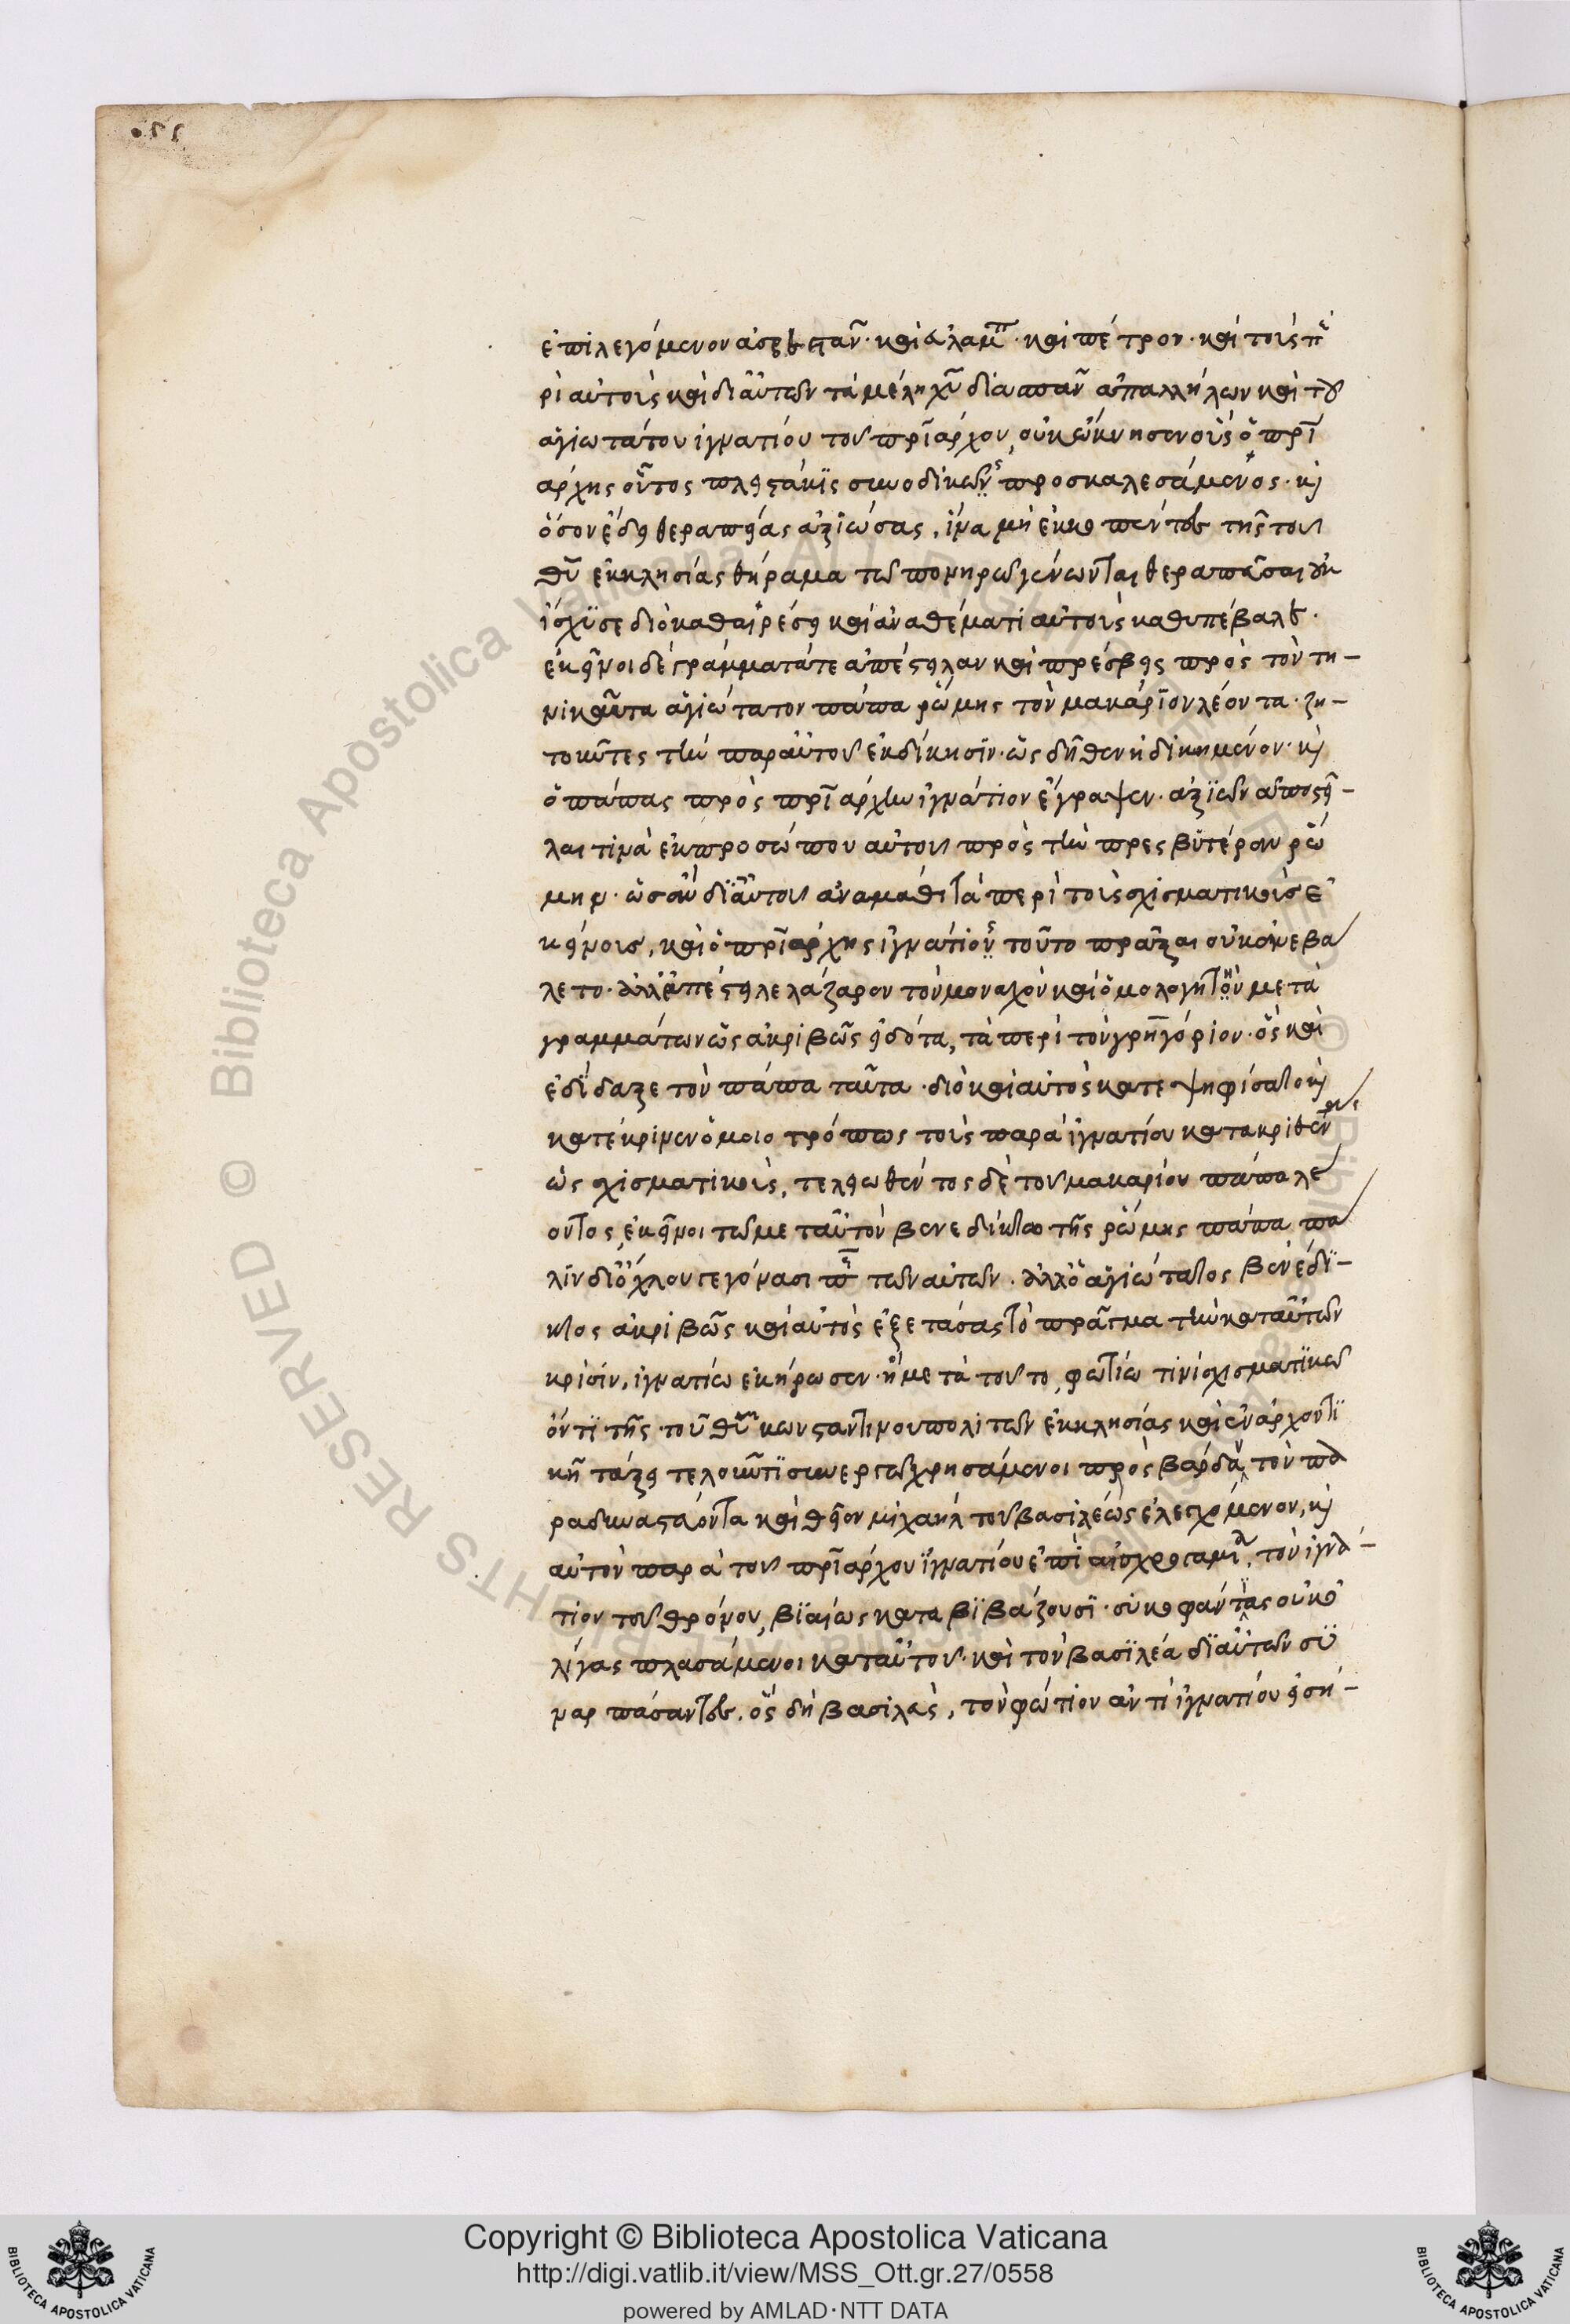 ἐπιλεγόμενον ἀσβεστᾶν· καὶ εὐλάμπ· καὶ πέτρον· καὶ τοὺς πε
ρὶ αὐτοὺς καὶ δι' αὐτῶν τὰ μέλη χυ διασπᾶν ἀπ' ἀλλήλων καὶ τοῦ
ἁγιωτάτου ἰγνατίου τοῦ πριάρχου, οὐκ ὤκνησεν οὓς ὁ πρι
άρχης οὗτος πλειστάκις συνοδικῶς προσκαλεσάμενος· καὶ
ὅσον ἔδει θεραπείας ἀξιώσας, ἵνα μὴ ἐκκοπέντες τῆς τοῦ
θυ ἐκκλησίας θήραμα τῷ πονηρῷ γένωνται θεραπεῦσαι οὐκ
ἴσχυσε διὸ καθαιρέσει καὶ ἀναθέματι αὐτοὺς καθυπέβαλε·
ἐκεῖνοι δὲ γράμματά τε ἀπέστειλαν καὶ πρέσβεις πρὸς τὸν τη-
νικαῦτα ἁγιώτατον πάπα ῥώμης τὸν μακάριον λέοντα· ζη-
τοῦντες τὴν παρ' αὐτοῦ ἐκδίκησιν· ὡς δῆθεν ἠδικημένον· καὶ
ὁ πάπας πρὸς πριάρχην ἰγνάτιον ἔγραψεν· ἀξιῶν ἀποστεῖ-
λαι τινὰ ἐκ προσώπου αὐτοῦ πρὸς τὴν πρεσβυτέραν ῥώ
μην· ὡς ἂν δι' αὐτοῦ ἀναμάθῃ τὰ περὶ τοὺς σχισματικοὺς ἐ
κείνους, καὶ ὁ πριάρχης ἰγνάτιος τοῦτο πρᾶξαι οὐκ ἀνεβά
λετο· ἀλλ' ἀπέστειλε λάζαρον τὸν μοναχὸν καὶ ὁμολογητὴν μετὰ
γραμμάτων ὡς ἀκριβῶς εἰδότα, τὰ περὶ τὸν γρηγόριον· ὃς καὶ
ἐδίδαξε τὸν πάπα ταῦτα· διὸ καὶ αὐτὸς κατεψηφίσατο καὶ
κατέκρινεν ὁμοιοτρόπως τοὺς παρὰ ἰγνατίου κατακριθέντας
ὡς σχισματικοὺς, τελειωθέντος δὲ τοῦ μακαρίου πάπα λέ
οντος, ἐκεῖνοι τῷ μετ' αὐτὸν βενεδίκτῳ τῆς ῥώμης πάπα, πά
λιν δι' ὄχλου γεγόνασι περὶ τῶν αὐτῶν. ἀλλ' ὁ ἁγιώτατος βενέδι-
κτος ἀκριβῶς καὶ αὐτὸς ἐξετάσας τὸ πρᾶγμα τὴν κατ' αὐτῶν
κρίσιν, ἰγνατίῳ ἐκύρωσεν· οἳ μετὰ τοῦτο, φωτίῳ τινὶ σχισματικῷ
ὄντι τῆς τοῦ θυ κωνσταντινουπολιτῶν ἐκκλησίας καὶ ἐν ἀρχοντι
κῇ τάξει τελοῦντι συνεργῷ χρησάμενοι πρὸς βάρδαν, τὸν πα
ραδυναστεύοντα καὶ θεῖον μιχαὴλ τοῦ βασιλέως ἐλεγχόμενον, καὶ
αὐτὸν παρὰ τοῦ πριάρχου ἰγνατίου ἐπὶ αἰσχρογαμίᾳ, τὸν ἰγνά-
τιον τοῦ θρόνου, βιαίως καταβιβάζουσι· συκοφαντίας οὐκ ὀ
λίγας πλασάμενοι κατ' αὐτοῦ· καὶ τὸν βασιλέα δι' αὐτῶν συ
ναρπάσαντες. ὃς δὴ βασιλεὺς, τὸν φώτιον ἀντὶ ἰγνατίου εἰσή-
Copyright © Biblioteca Apostolica Vaticana
http://digi.vatlib.it/view/MSS_Ott.gr.27/0558
powered by AMLAD·NTT DATA
BIBLIOTECA APOSTOLICA VATICANA
BIBLIOTECA APOSTOLICA VATICANA